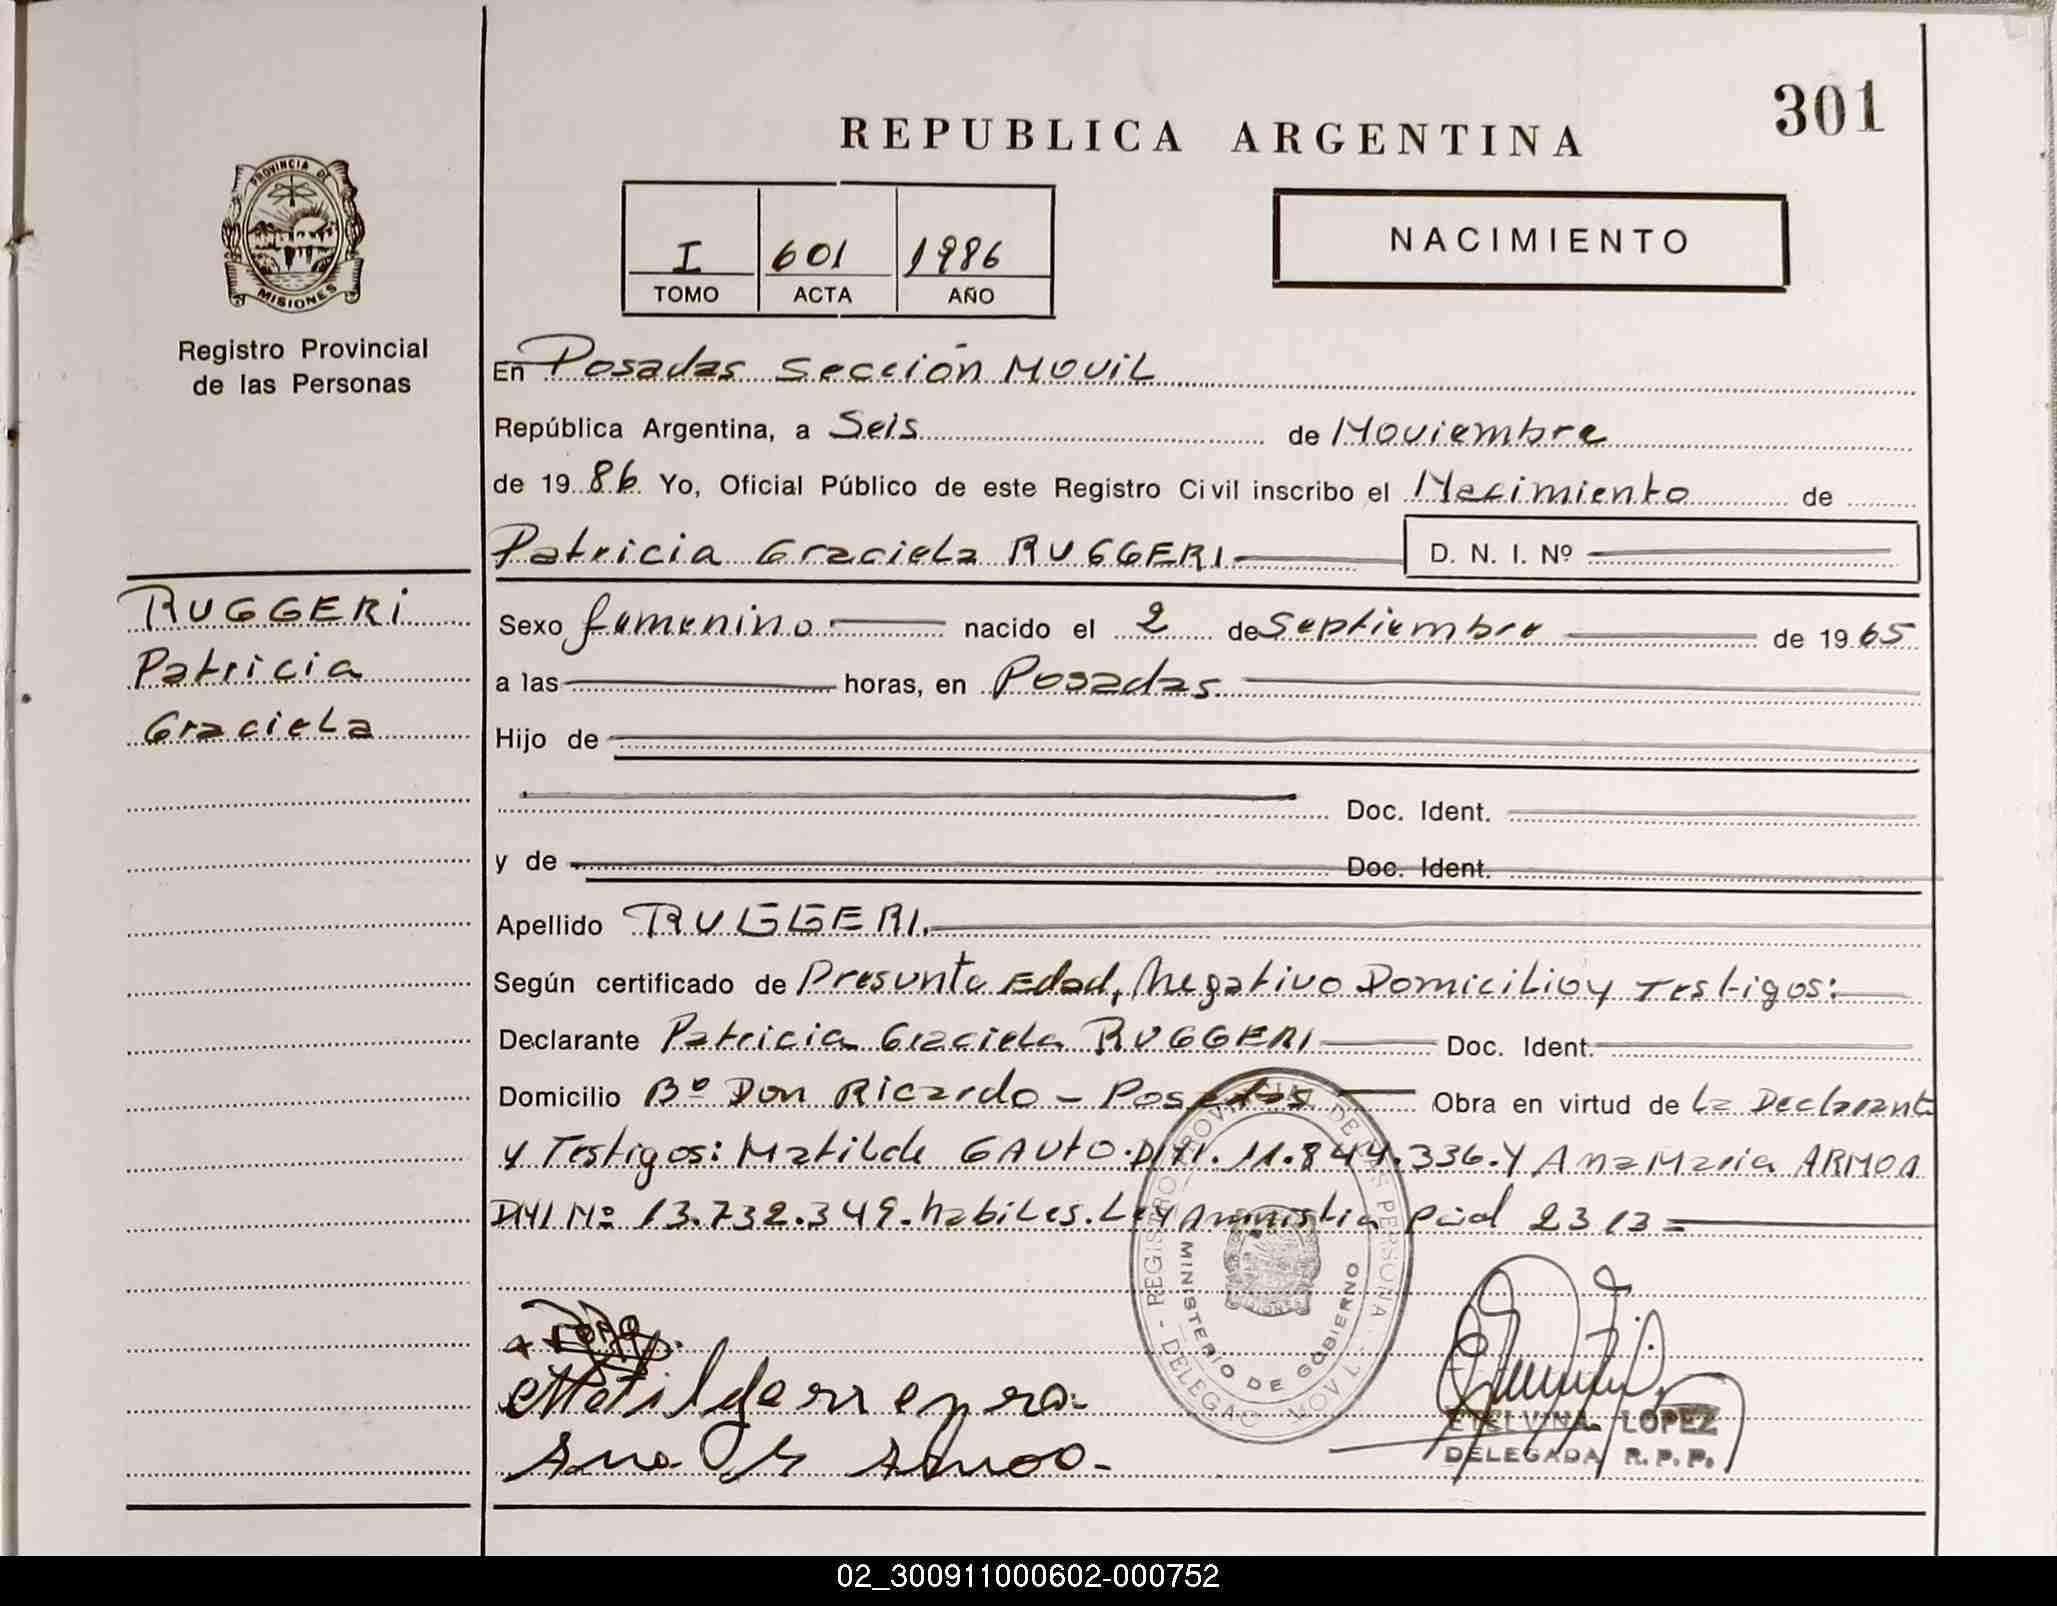 301
REPUBLICA ARGENTINA
PROVINCIA DE
MISIONES
Registro Provincial
de las Personas
I 601 1986
TOMO ACTA AÑO
NACIMIENTO
En Posadas Sección Movil
República Argentina, a Seis de Noviembre
de 1986 Yo, Oficial Público de este Registro Civil inscribo el Nacimiento de
Patricia Graciela RUGGERI D. N. I. Nº
RUGGERI
Patricia
Graciela
Sexo femenino nacido el 2 de Septiembre de 1965
a las horas, en Posadas
Hijo de
Doc. Ident.
y de Doc. Ident.
Apellido RUGGERI.
Según certificado de Presunta Edad, Negativo Domicilio y Testigos:
Declarante Patricia Graciela RUGGERI Doc. Ident.
Domicilio Bº Don Ricardo - Posadas Obra en virtud de la Declarant
y Testigos: Matilde GAUTO. DNI. 11.844.336. Y Ana Maria ARMOA
DNI Nº 13.732.349. habiles. Ley Amnistia 2313=
REGISTRO PROVINCIAL DE LAS PERSONAS - DELEGAC. MOVIL
MINISTERIO DE GOBIERNO
Ana
LOPEZ
DELEGADA R. P. P.
02_300911000602-000752